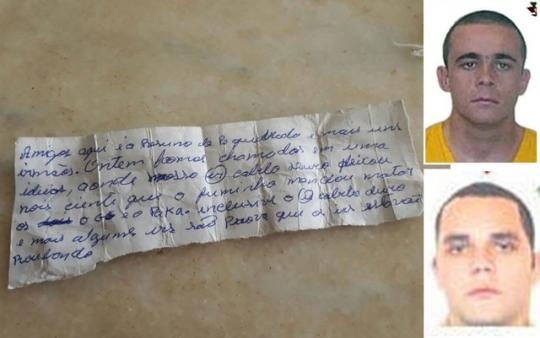 Amigos aqui é o Resumo do Pé quebrado e mais uns
irmãos. Ontem fomos chamados em uma
ideia, aonde nosso ir cabelo duro deixou
nois ciente que o fuminho mandou matar
os o GG e o Paka. inclusive o ir cabelo duro
e mais alguns irs são Prova que os irs estavam
Roubando